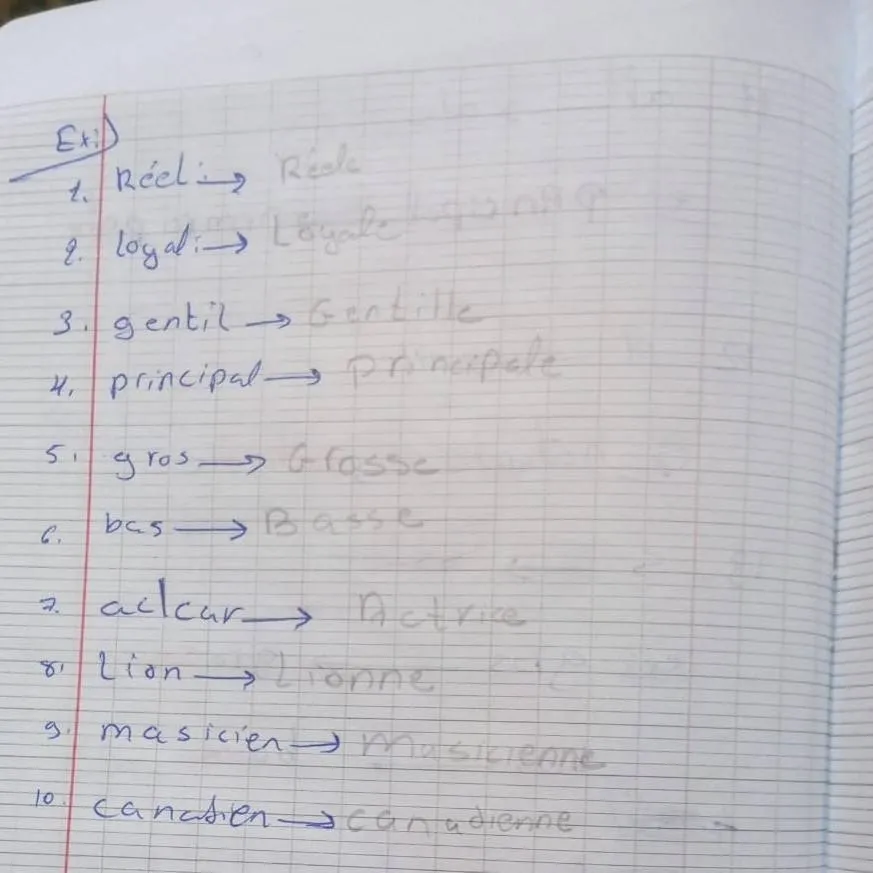 Ex:)
1. Réel: → Réele
2. loyal: → Loyale
3. gentil → Gentille
4. principal → principale
5. gros → Grosse
6. bas → Basse
7. → Actrice
8. Lion → Lionne
9. masicien → Musicienne
10. canadien → canadienne